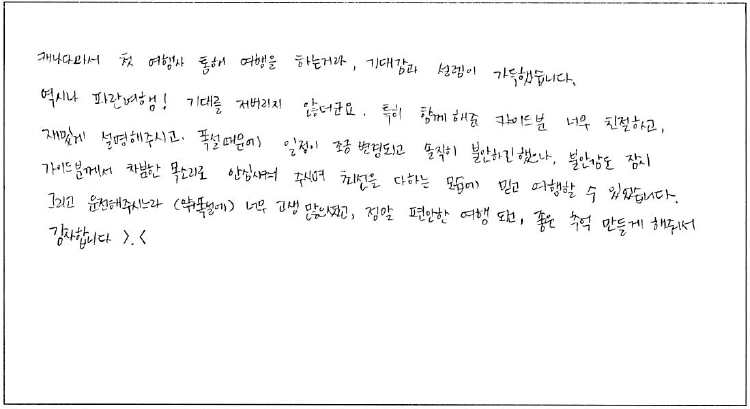 캐나다와서 첫 여행사 통해 여행을 하는거라, 기대감과 설렘이 가득했습니다.
역시나 파란여행! 기대를 저버리지 않더군요. 특히 함께해준 가이드분 너무 친절하고,
재밌게 설명해주시고. 폭설때문에 일정이 조금 변경되고 솔직히 불안하긴했으나, 불안감도 잠시
가이드분께서 차분한 목소리로 안심시켜 주시며 최선을 다하는 모습에 믿고 여행할 수 있었습니다.
그리고 운전해주시느라 너무 고생 많으셨고, 정말 편안한 여행 또한, 좋은 추억 만들게 해주셔서
감사합니다 >.<